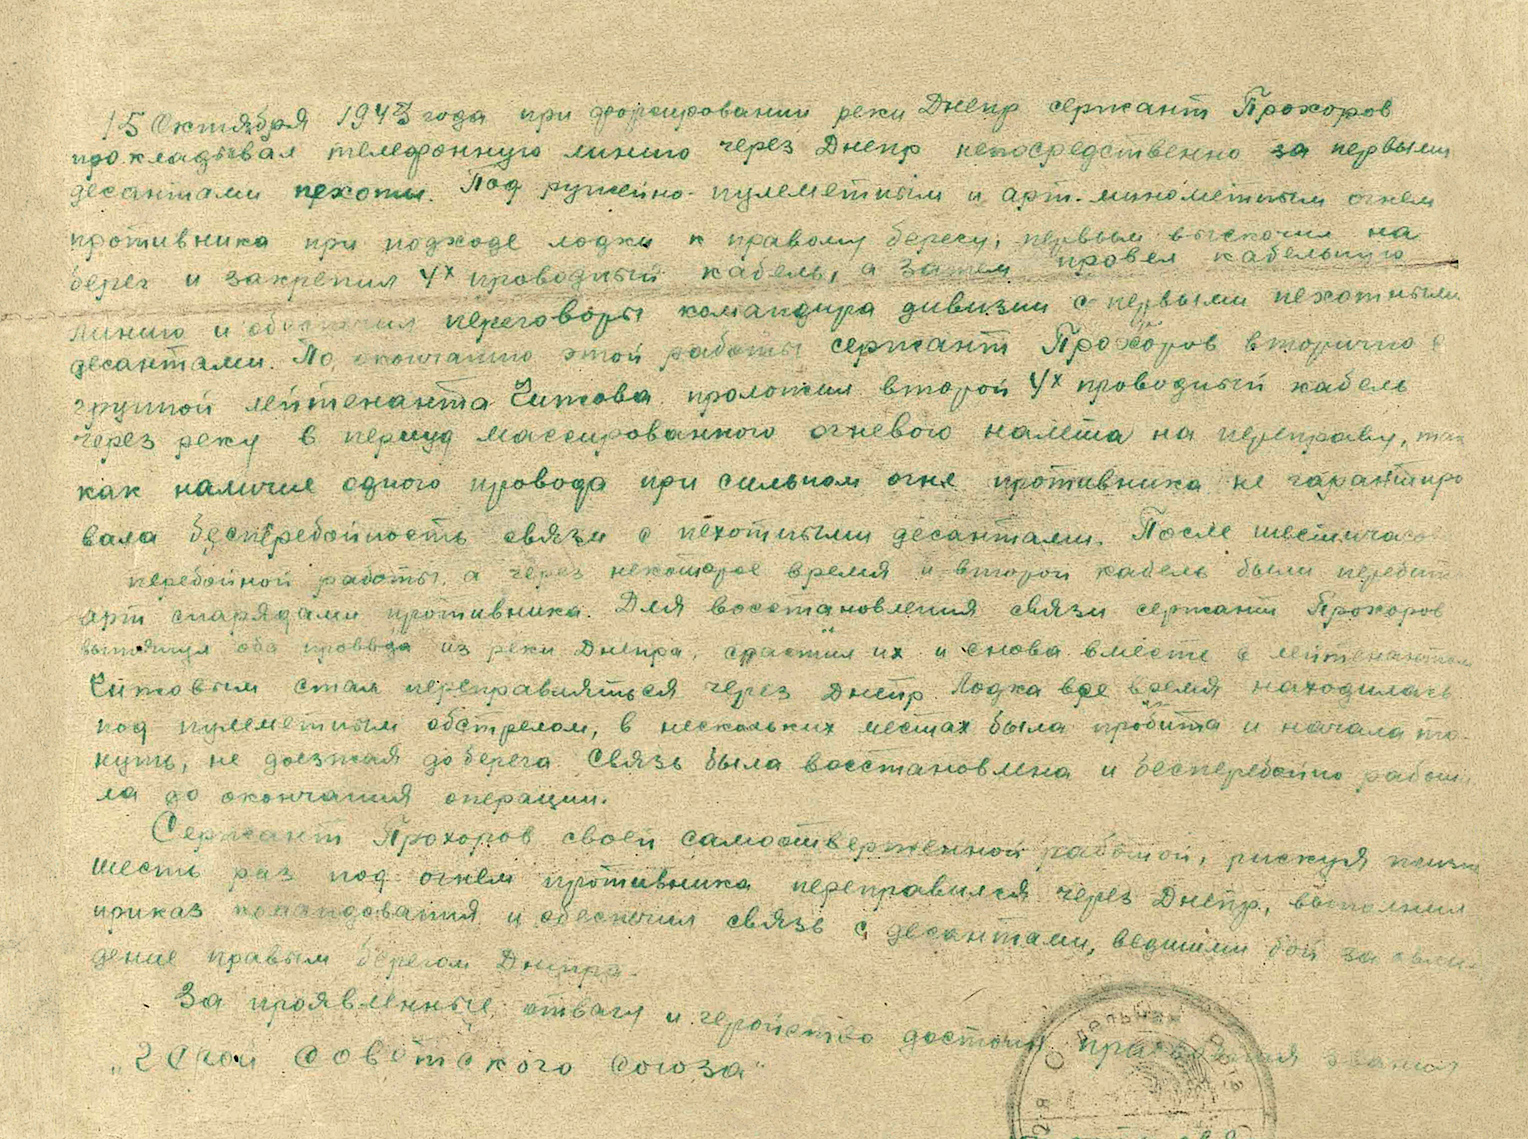 15 Октября 1943 года при форсировании реки Днепр сержант Прохоров
прокладывал телефонную линию через Днепр непосредственно за первыми
десантами пехоты. Под ружейно-пулеметным и арт. минометным огнем
противника при подходе лодки к правому берегу, первым выскочил на
берег и закрепил 4х проводный кабель, а затем провел кабельную
линию и обеспечил переговоры командира дивизии с первыми пехотными
десантами. По окончанию этой работы сержант Прохоров вторично с
группой лейтенанта Читова проложил второй 4х проводный кабель
через реку в период массированного огневого налета на переправу, так
как наличие одного провода при сильном огне противника не гарантиро
вала бесперебойность связи с пехотными десантами. После шестичасов
перебойной работы, а через некоторое время и второй кабель были перебиты
арт снарядами противника. Для восстановления связи сержант Прохоров
вытянул оба провода из реки Днепра, срастил их и снова вместе с лейтенантом
Читовым стал переправляться через Днепр Лодка все время находилась
под пулеметным обстрелом, в нескольких местах была пробита и начала то-
нуть, не доезжая до берега Связь была восстановлена и бесперебойно работа
ла до окончания операции.
Сержант Прохоров своей самоотверженной работой, рискуя жизнью
шесть раз под огнем противника переправился через Днепр, выполнил
приказ командования и обеспечил связь с десантами, ведшими бой за овла-
дение правым берегом Днепра.
За проявленные отвагу и геройство достоин присвоения звания
„Герой Советского Союза"